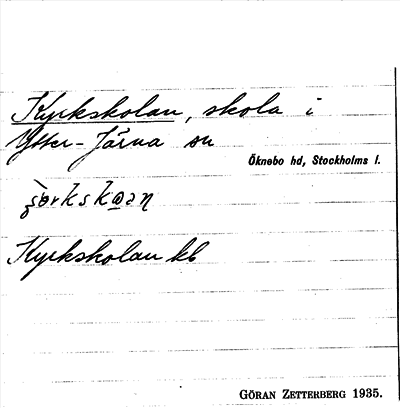 Kyrkskolan, skola i
Ytter-Järna sn
Öknebo hd, Stockholms l.
Kyrkskolan kb
GÖRAN ZETTERBERG 1935.